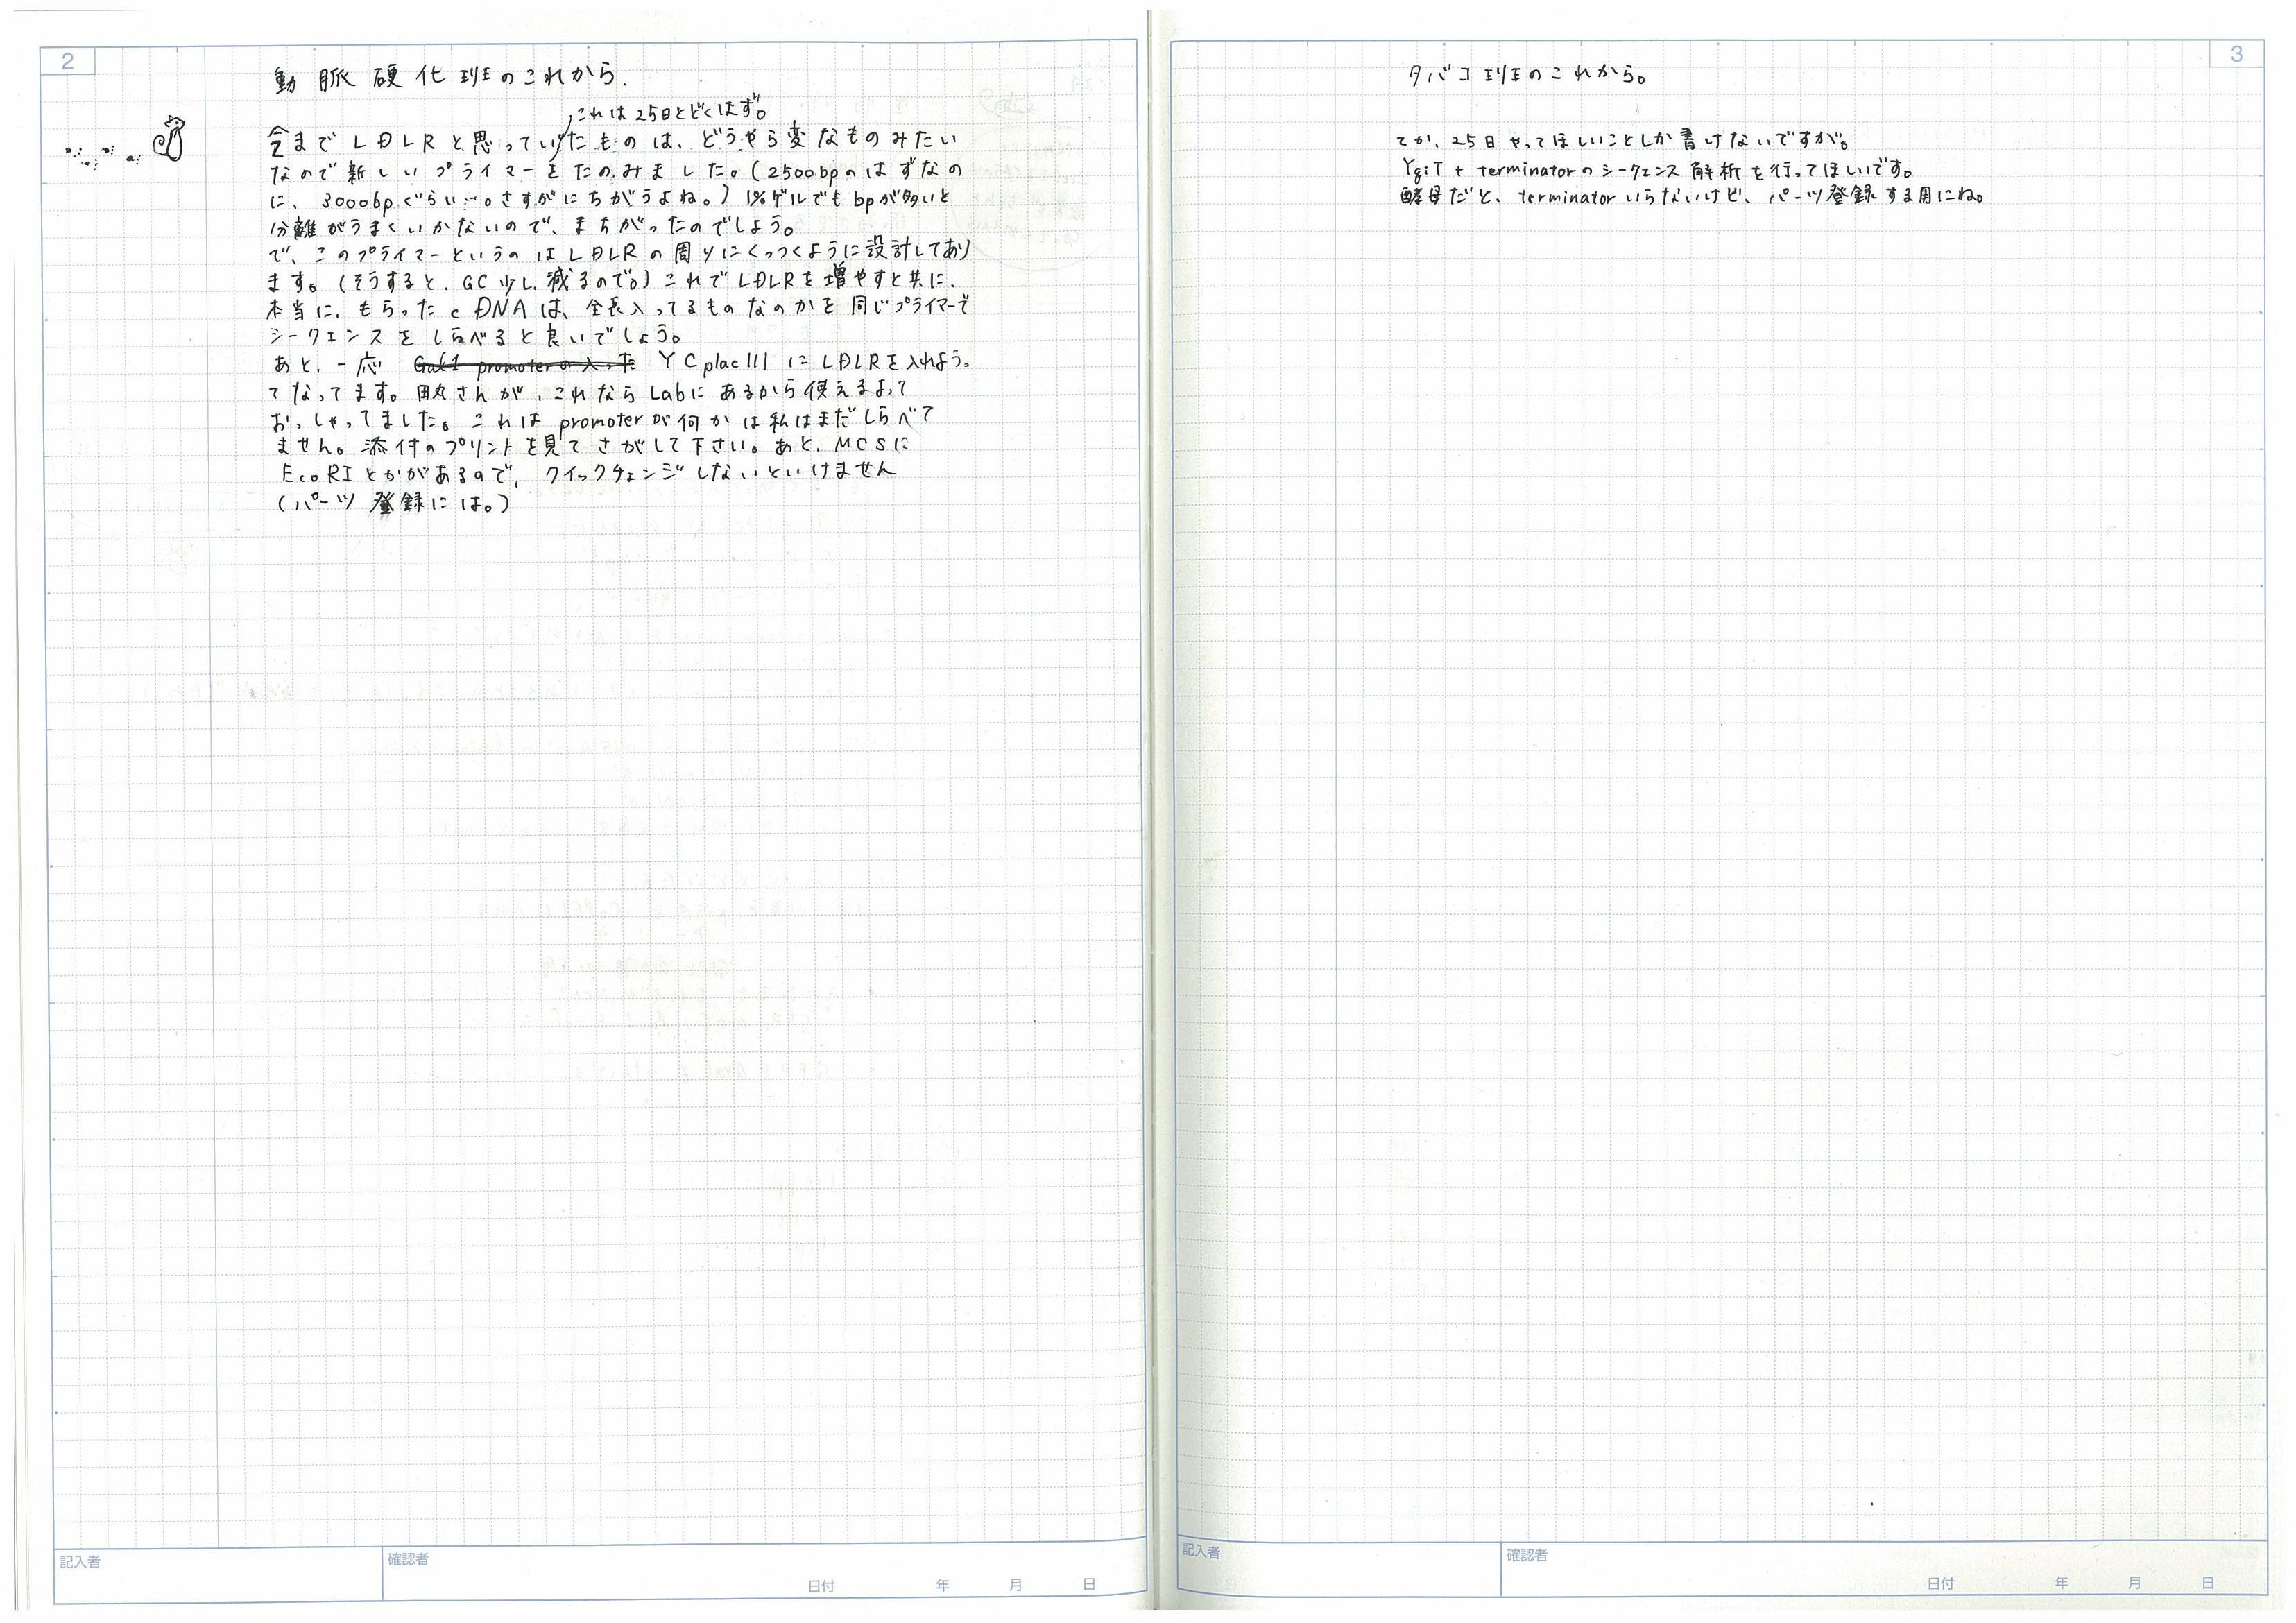 2
動脈硬化班のこれから.
これは25日とどくはず。
今までLDLRと思っていたものは、どうやら変なものみたい
なので新しいプライマーをたのみました。(2500bpのはずなの
に、3000bpぐらい…。さすがにちがうよね。)1%ゲルでもbpが多いと
分離がうまくいかないので、まちがったのでしょう。
で、このプライマーというのはLDLRの周りにくっつくように設計してあり
ます。(そうすると、GC少し減るので。)これでLDLRを増やすと共に、
本当に、もらったcDNAは、全長入ってるものなのかを同じプライマーで
シークェンスをしらべると良いでしょう。
あと、一応 Gal1 promoterの入った YCplac111にLDLRを入れよう。
てなってます。田丸さんが、これならLabにあるから使えるよって
おっしゃってました。これはpromoterが何かは私はまだしらべて
ません。添付のプリントを見てさがして下さい。あと、MCSに
EcoRIとかがあるので、クイックチェンジしないといけません
(パーツ登録には。)
記入者
確認者
日付 年 月 日
3
タバコ班のこれから。
てか、25日やってほしいことしか書けないですが。
YgiT + terminatorのシークェンス解析を行ってほしいです。
酵母だと、terminatorいらないけど、パーツ登録する用にね。
記入者
確認者
日付 年 月 日